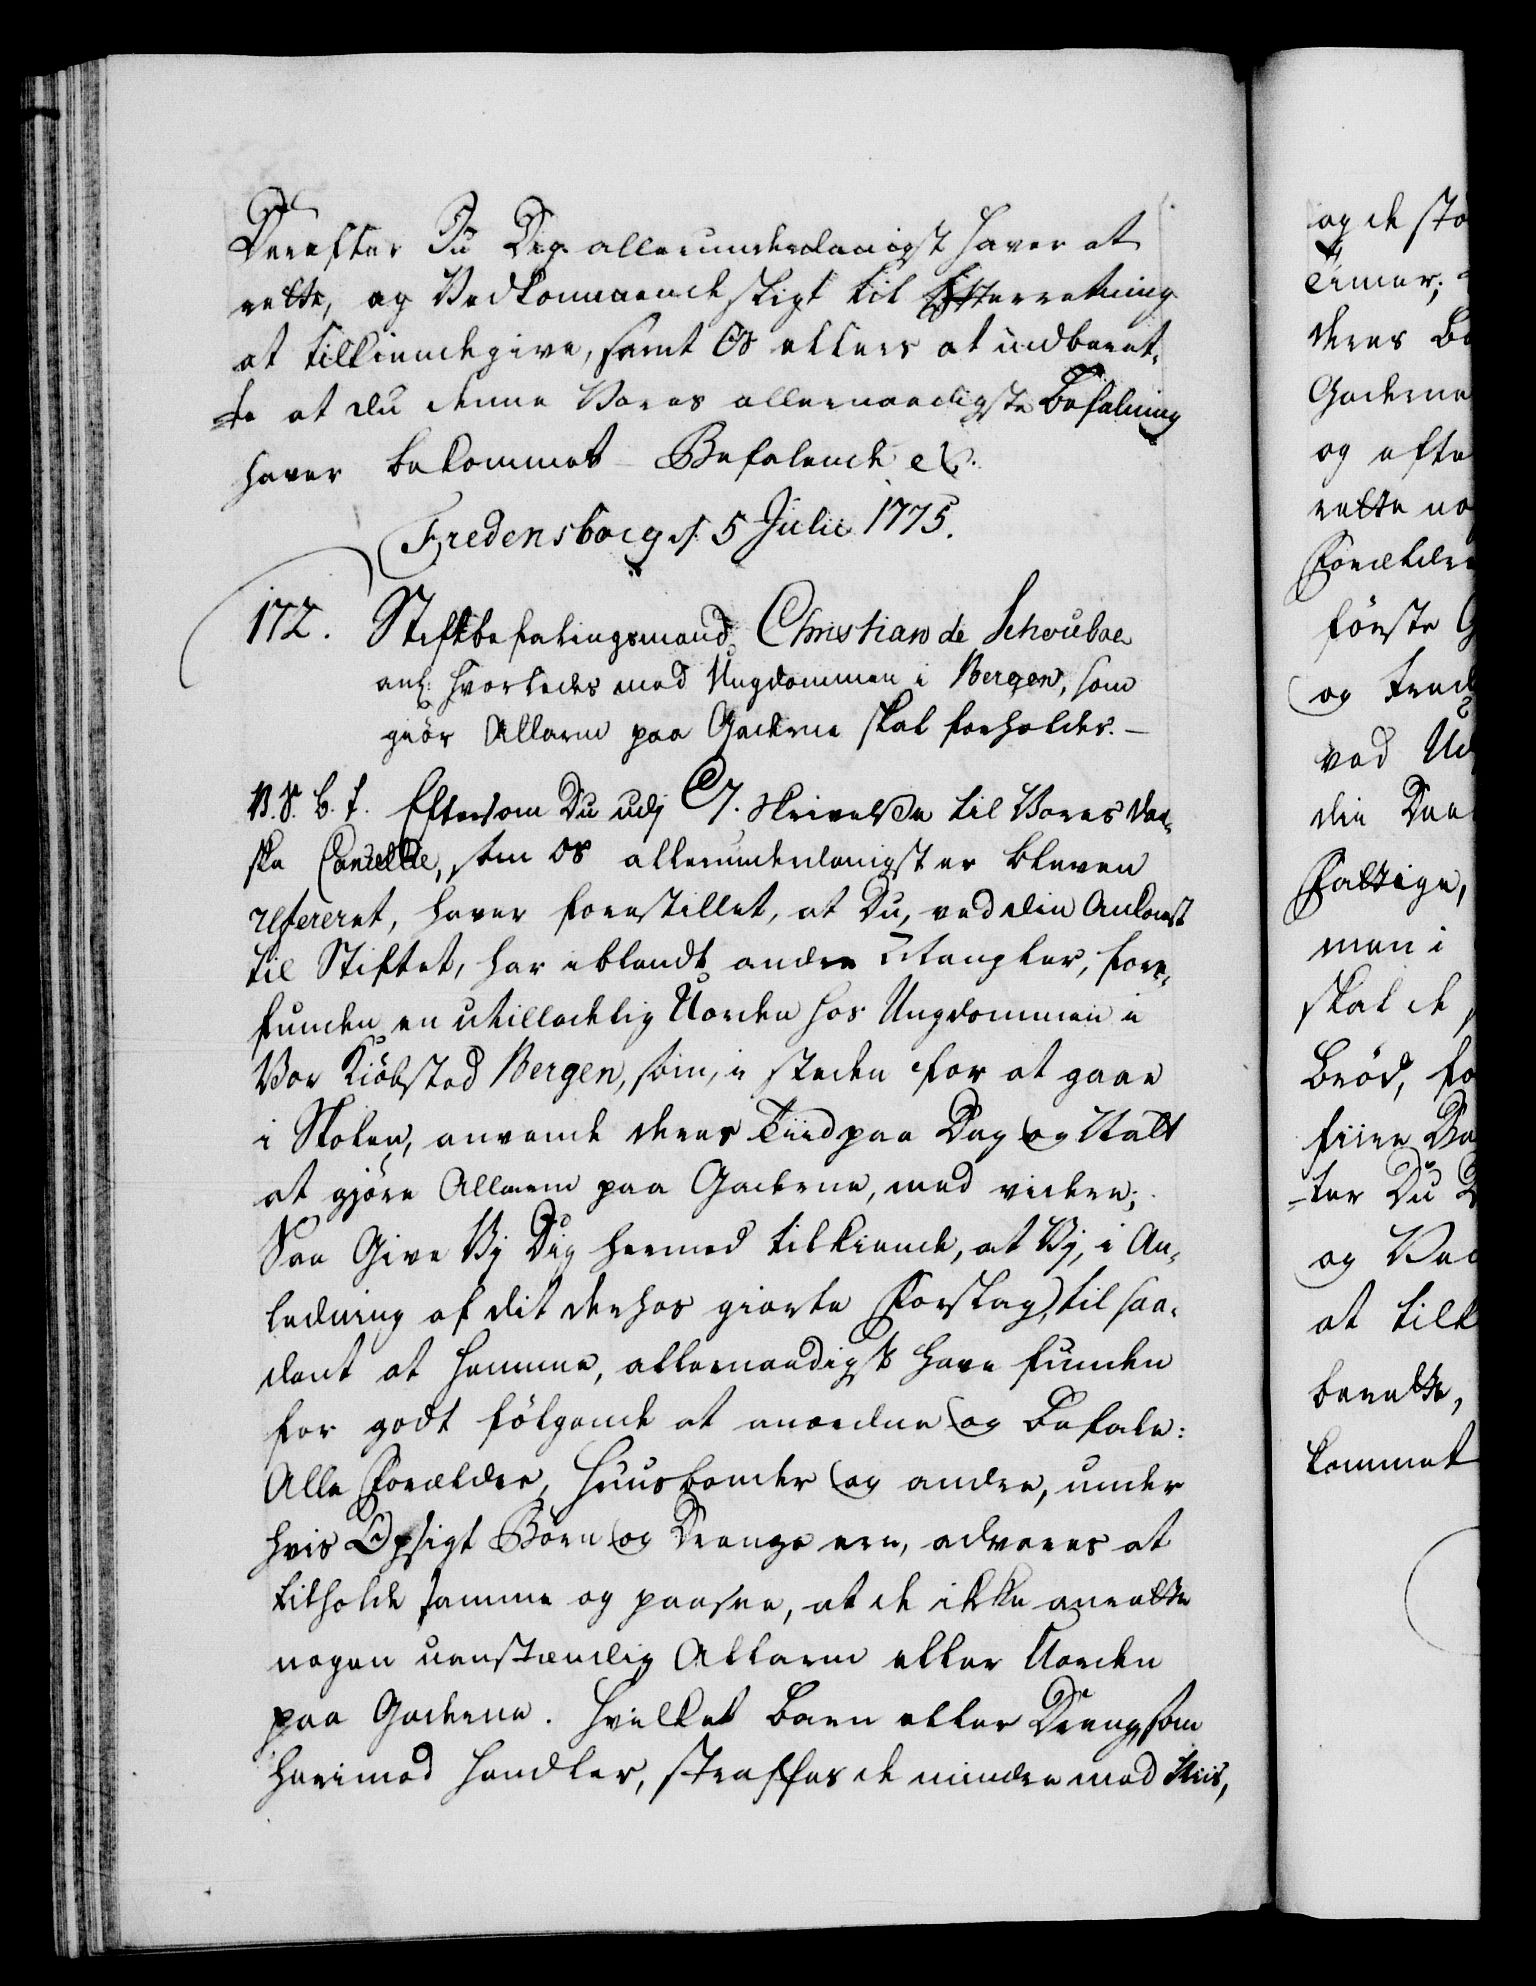 Derefter Du Dig allerunderdanigst haver at
rette, og Vedkommende sligt til Efterretning
at tilkiendegive, samt Os ellers at indberet-
te at du denne Vores allernaadigste Befalning
haver bekommet Befalende etc.
Fredensborg d. 5 Julii 1775.
172. Stiftbefalingsmand Christian de Schouboe
anl: hvorledes med Ungdommen i Bergen, som
giör Allarm paa Gaderne skal forholdes. —
V. S. B. t. Eftersom Du udj Skrivelse til Vores dan-
ske Cancellie, som os allerunderdanigst er bleven
refereret, haver forestillet, at Du, ved din Ankomst
til Stiftet, har iblandt andre Mangler, fore-
funden en utilladelig Uorden hos Ungdommen i
Vor Kiöbsted Bergen, som, i steden for at gaae
i Skolen, anvende deres Tiid paa Dag og Natt
at gjöre Allarm paa Gaderne, med videre;
Saa Give Vj Dig hermed tilkiende, at Vj, i An-
ledning af dit derhos giorte Forslag, til saa-
dant at hemme, allernaadigst have funden
for godt fölgende at anordne og befale:
Alle Forældre, Huusbonder og andre, under
hvis Opsigt Börn og Drenge ere, advares at
tilholde samme og paasee, at de ikke anrette
nogen uanstændig Allarm eller Uorden
paa Gaderne. Hvilket Barn eller Dreng, som
herimod handler, straffes de mindre med Riis,
og de sto
Timer;
deres
Gaderne
og efte
rette no
Forældre
förste
og tred
ved
din
Fattige,
men i
skal de
Bröd, fo
fiire
ter Du
og Ved
at tilk
berette,
kommet